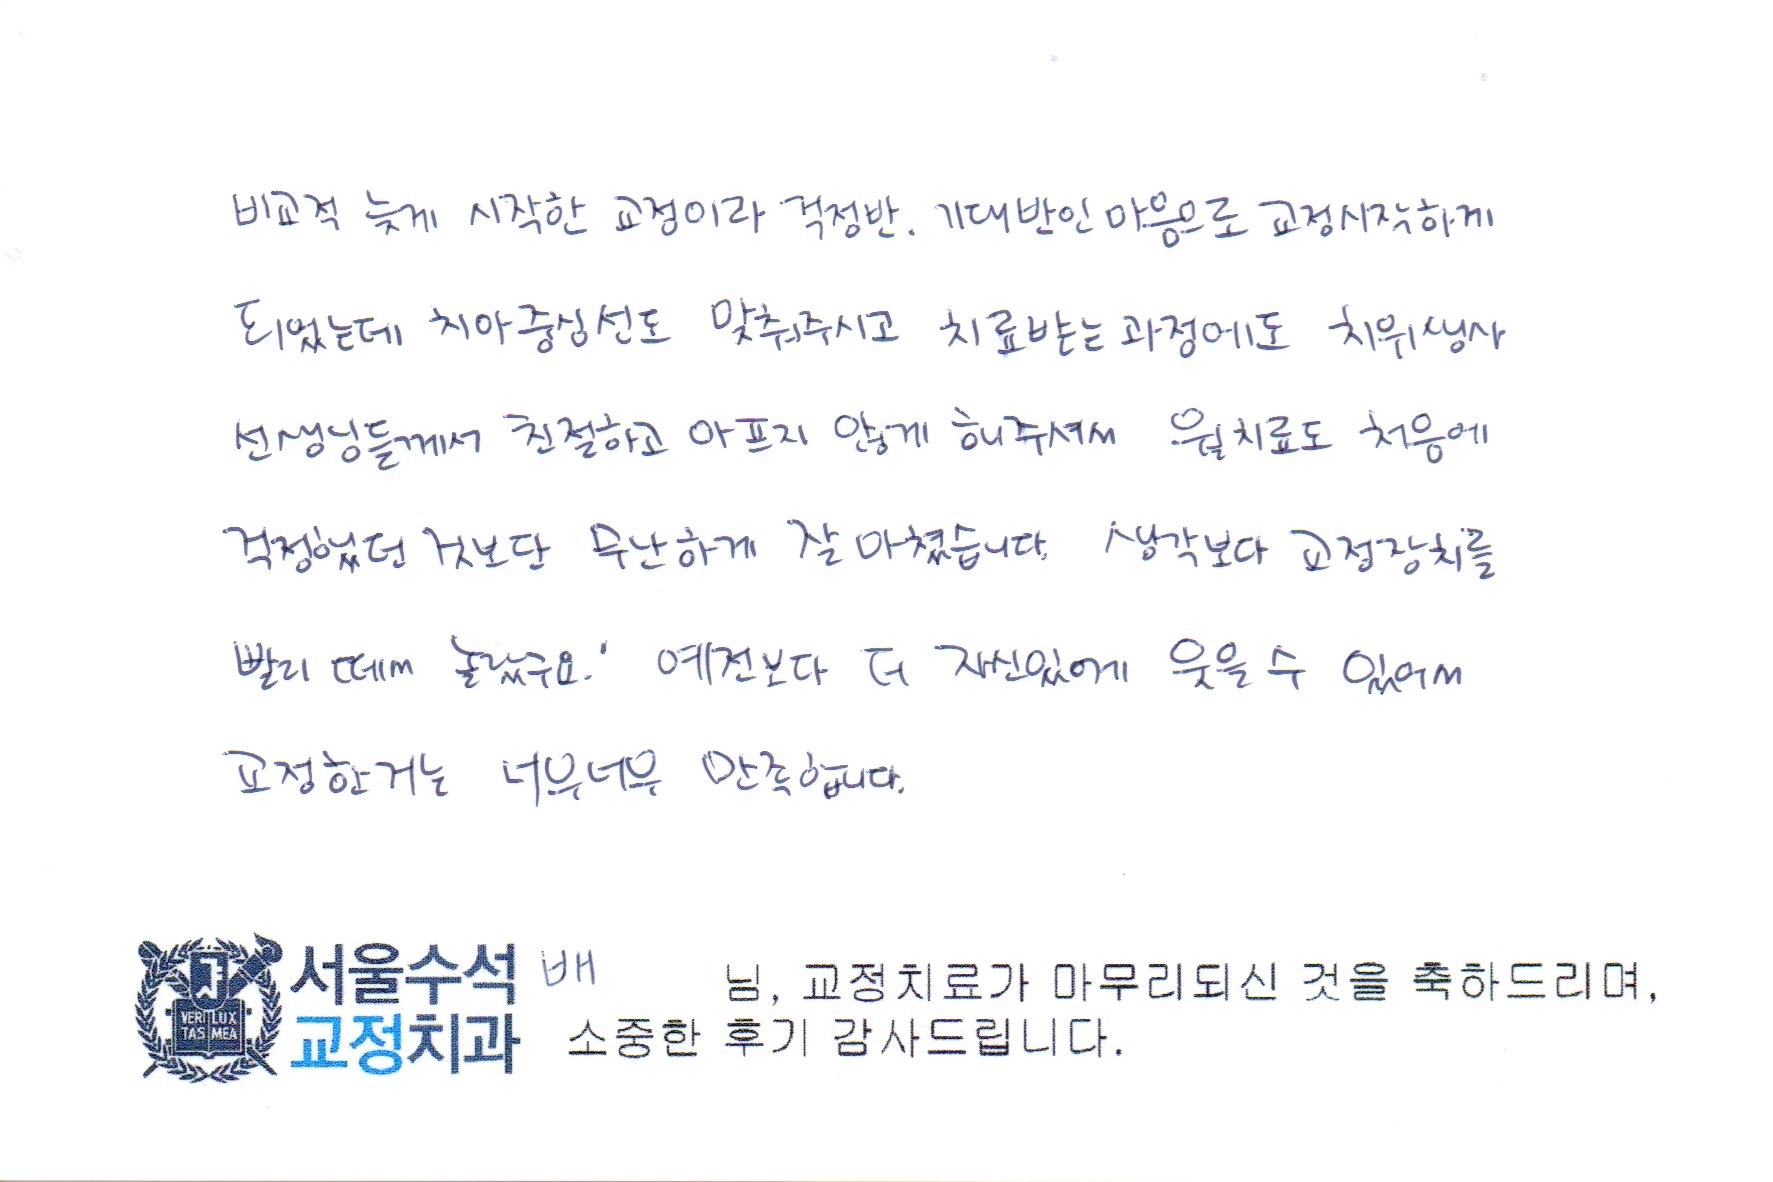 비교적 늦게 시작한 교정이라 걱정반. 기대반인 마음으로 교정시작하게
되었는데 치아중심선도 맞춰주시고 치료받는 과정에도 치위생사
선생님들께서 친절하고 아프지 않게 해주셔서 월치료도 처음에
걱정했던 것보단 무난하게 잘 마쳤습니다. 생각보다 교정장치를
빨리 떼서 놀랐구요! 예전보다 더 자신있게 웃을 수 있어서
교정한거는 너무너무 만족합니다.
서울수석 배 님, 교정치료가 마무리되신 것을 축하드리며,
교정치과 소중한 후기 감사드립니다.
VERI LUX
TAS MEA